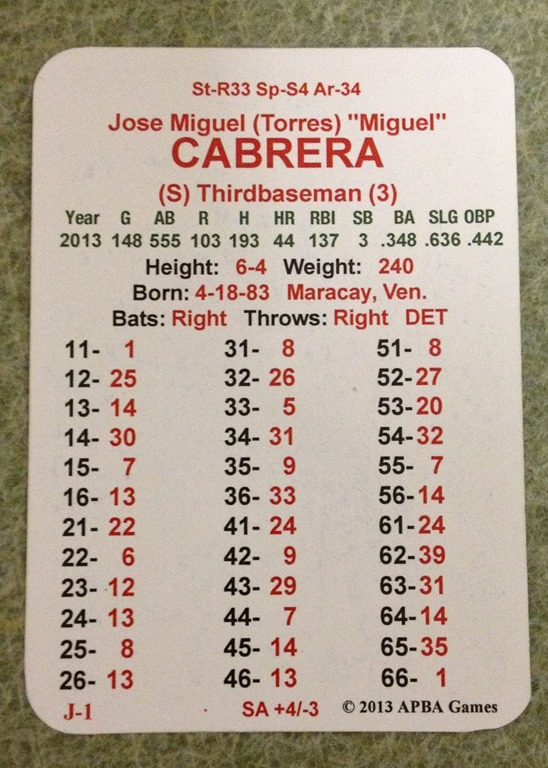 St-R33 Sp-S4 Ar-34
Jose Miguel (Torres) "Miguel"
CABRERA
(S) Thirdbaseman (3)
Year G AB R H HR RBI SB BA SLG OBP
2013 148 555 103 193 44 137 3 .348 .636 .442
Height: 6-4 Weight: 240
Born: 4-18-83 Maracay, Ven.
Bats: Right Throws: Right DET
11- 1 31- 8 51- 8
12- 25 32- 26 52- 27
13- 14 33- 5 53- 20
14- 30 34- 31 54- 32
15- 7 35- 9 55- 7
16- 13 36- 33 56- 14
21- 22 41- 24 61- 24
22- 6 42- 9 62- 39
23- 12 43- 29 63- 31
24- 13 44- 7 64- 14
25- 8 45- 14 65- 35
26- 13 46- 13 66- 1
J-1 SA +4/-3 © 2013 APBA Games